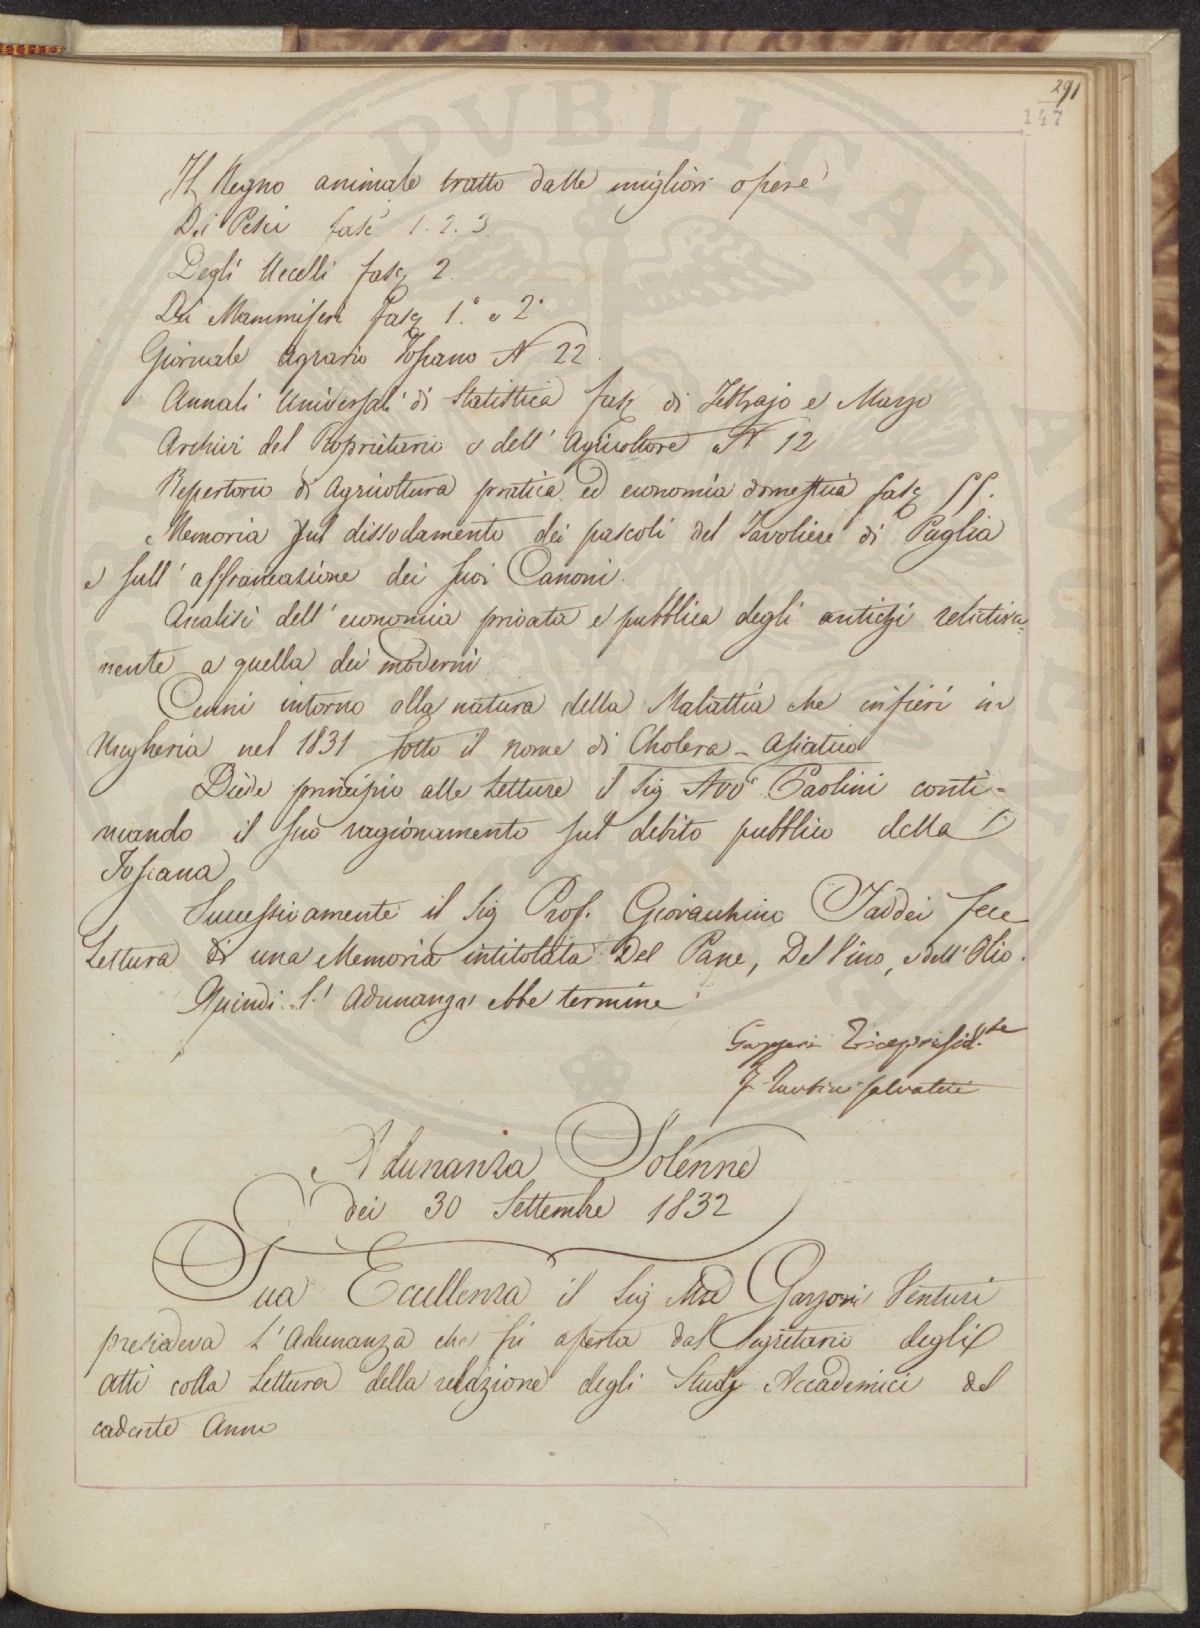 291
147
Il Regno animale tratto dalle migliori opere
Dei Pesci fasc 1. 2. 3.
Degli Uccelli fasc 2.
Dei Mammiferi fasc 1.º e 2º
Giornale agrario Toscano N 22.
Annali Universali di Statistica fasc di Febbrajo e Marzo
Archivi del Proprietario e dell' Agricoltore N 12
Repertorio di Agricoltura pratica ed economia domestica fasc 55.
Memoria sul dissodamento dei pascoli del Tavoliere di Puglia
e sull' affrancazione dei suoi Canoni.
Analisi dell' economia privata e pubblica degli antichi relativa=
mente a quella dei moderni
Cenni intorno alla natura della Malattia che infierì in
Ungheria nel 1831 sotto il nome di Cholera - Asiatico
Diede principio alle Letture il Sig Avvº Paolini conti=
nuando il suo ragionamento sul debito pubblico della
Toscana
Successivamente il Sig Prof. Giovacchino Taddei fece
Lettura di una Memoria intitolata Del Pane, Del Vino, e dell' Olio.
Quindi l' Adunanza ebbe termine
Gazzeri Vicepresid.te
Salvatori
Adunanza Solenne
dei 30 Settembre 1832
Sua Eccellenza il Sig Garzoni Venturi
presiedeva l' Adunanza che fù aperta dal Segretario degli
atti colla Lettura della relazione degli Studj Accademici del
cadente Anno
PVBLICAE